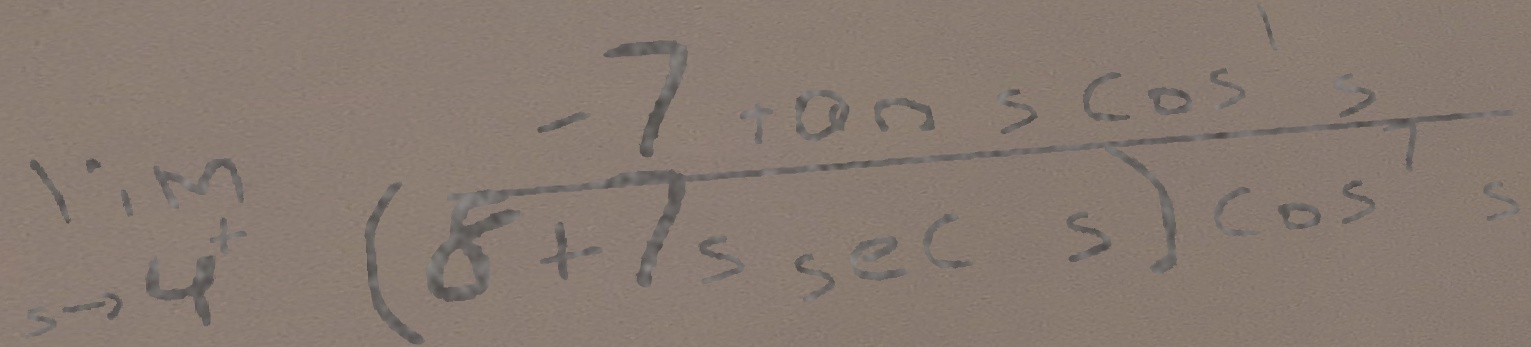 \lim_{s \to 4^+} \frac{-7 \tan s \cos^1 s}{(8 + 7 s \sec s) \cos^1 s}